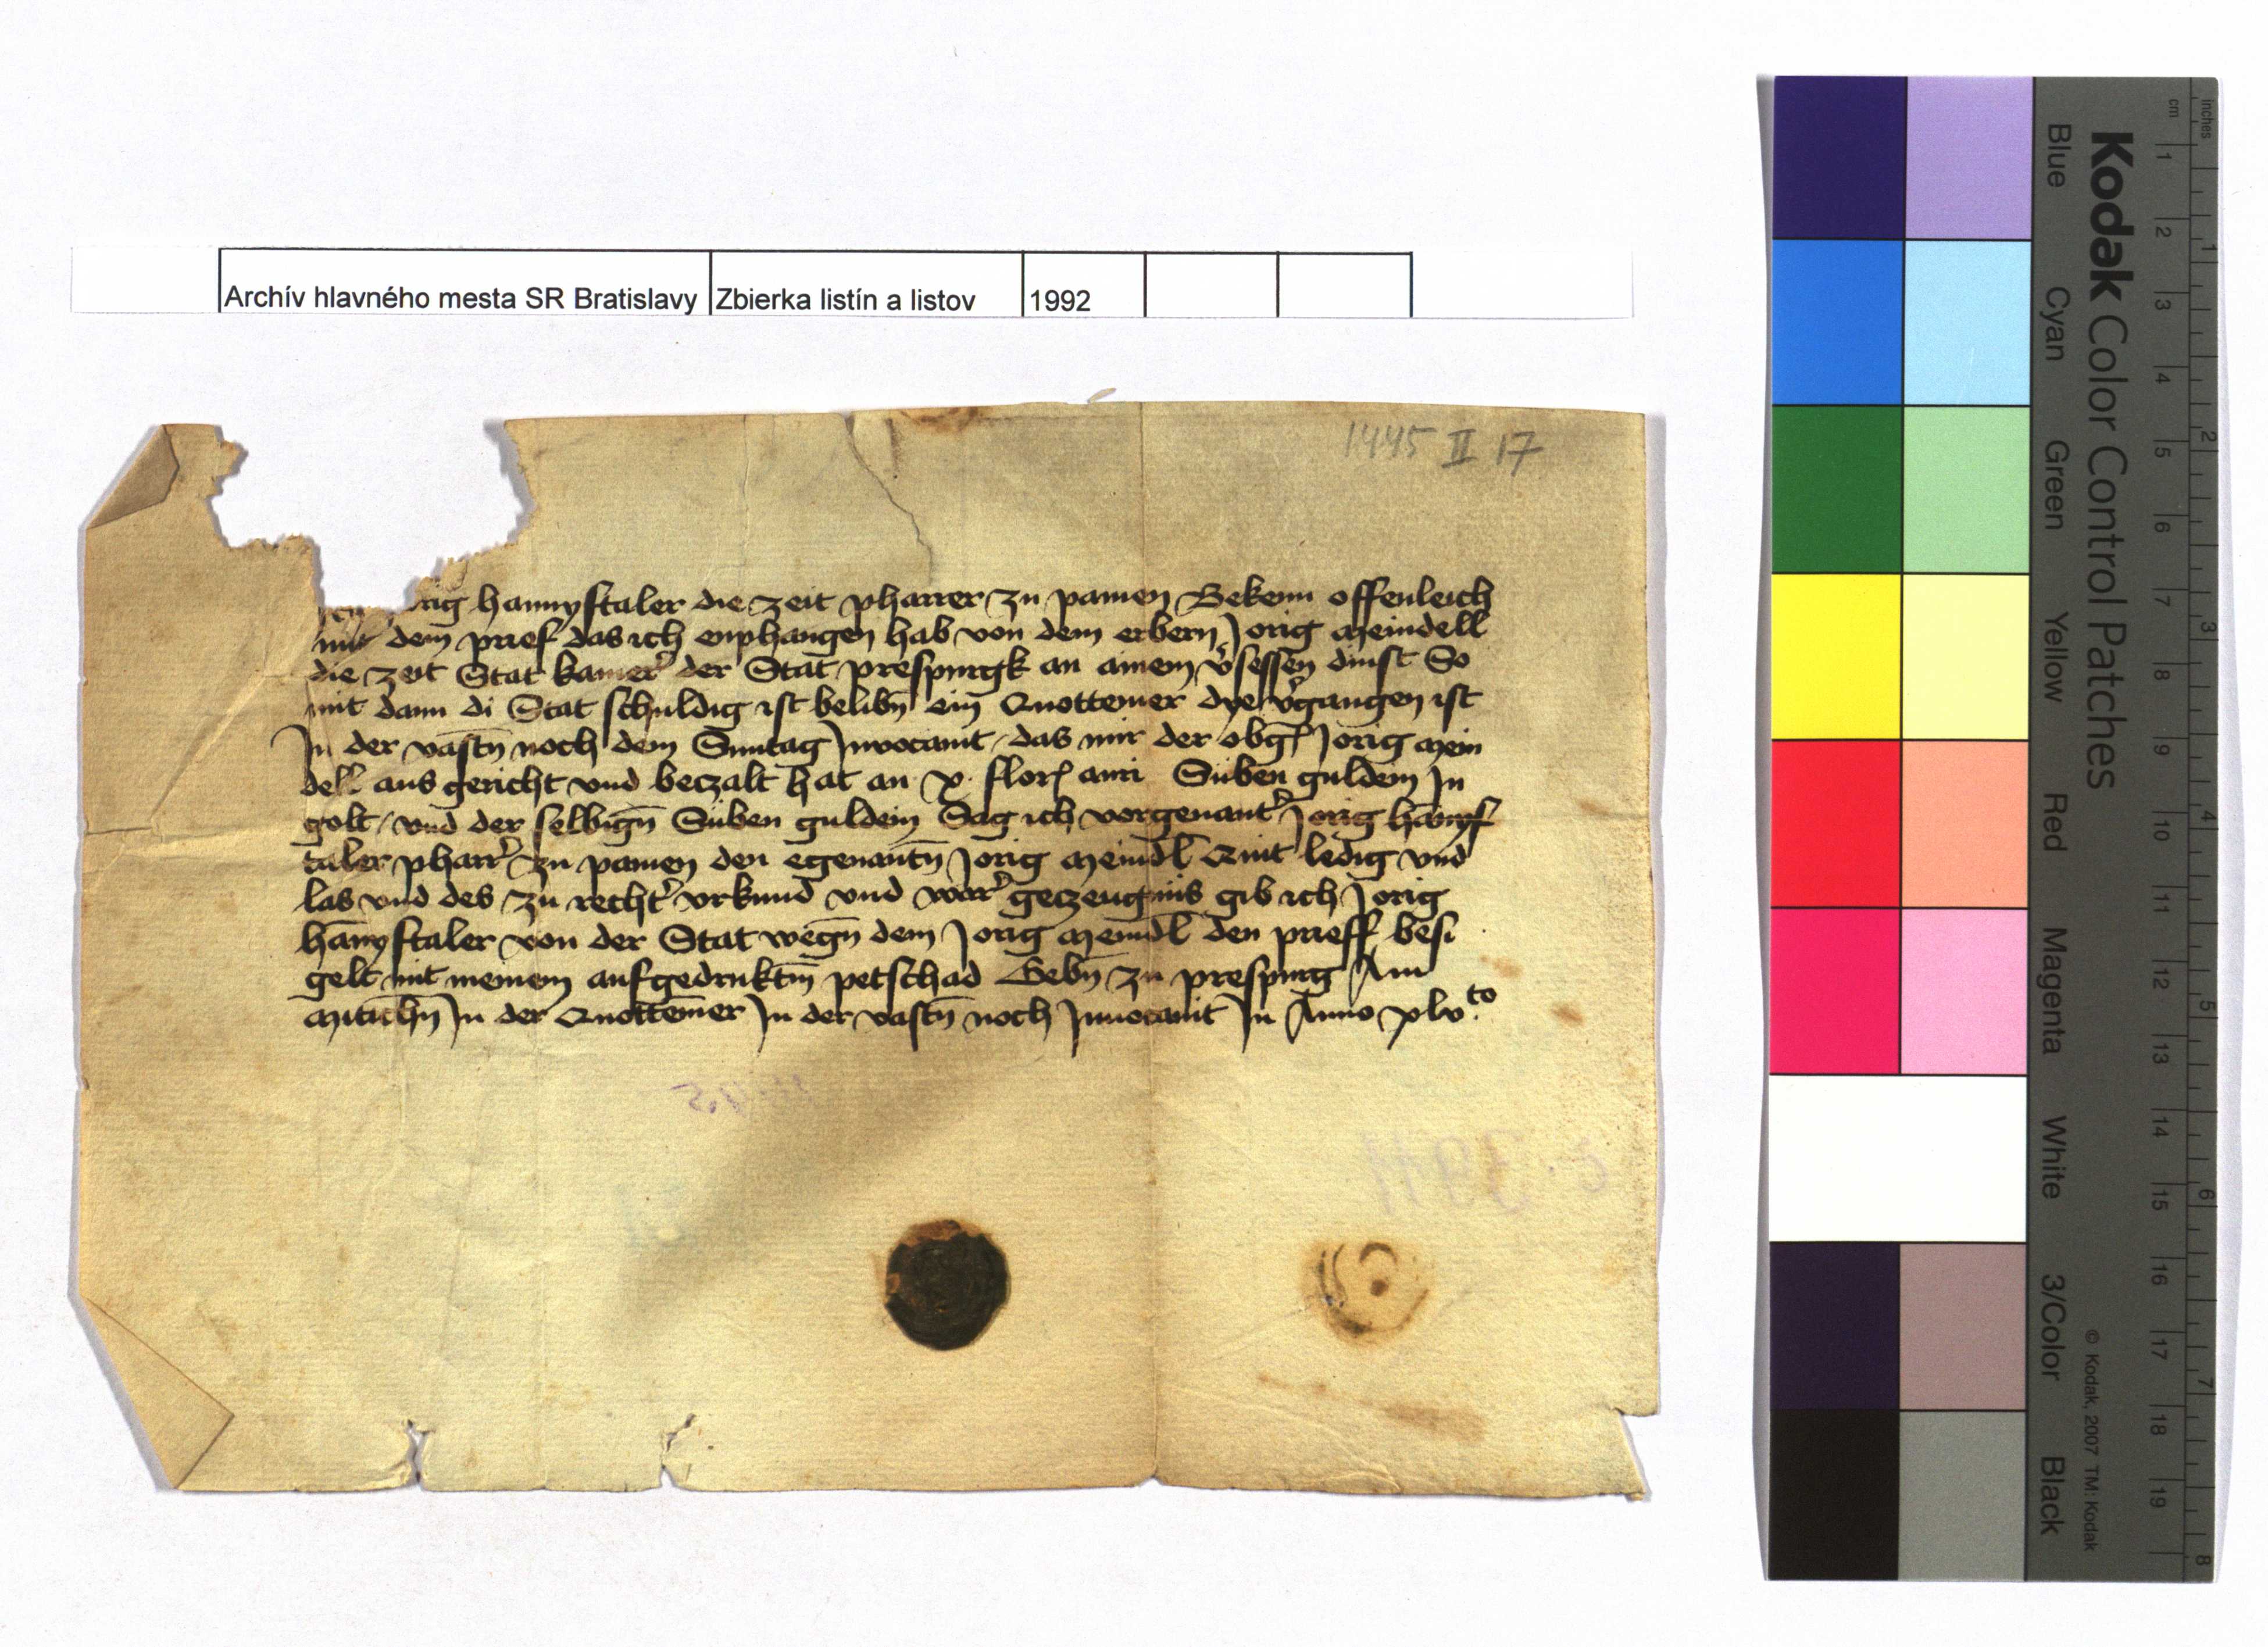 Archív hlavného mesta SR Bratislavy Zbierka listín a listov 1992
1445 II 17
hannyftaler die zeit pharrer zu pamen Bekenn offenleich
mit dem prief das ich enphangen hab von dem erbern Jorig Meindell
die zeit Stat kamer der Stat prespurgk an ainem vsessen dinst So
mit dann di Stat schuldig ist belibn ein Quottemer dye vgangen ist
In der vastn noch dem Suntag Invocauit / das mir der obg Jorig Mein
dell aus gericht vnd beczalt hat an x flor auri Siben guldem In
golt / vnd der selbign Siben guldein Sag ich vorgenant Jorig hanyf
taler pharr zu pamen den egenantn Jorig Meindl Quit ledig vnd
las vnd des zu recht vrkund vnd war geczeugnis gib ich Jorig
hanyftaler von der Stat wegn dem Jorig Meindl den prieff besi
gelt mit meinem aufgedruktm petschad Gebn zu prespurg Am
Mitichn In der Quottemer In der vastn noch Inuocauit In Anno xlv to
Kodak Color Control Patches
Blue Cyan Green Yellow Red Magenta White 3/Color Black
© Kodak, 2007 TM: Kodak
cm 1 2 3 4 5 6 7 8 9 10 11 12 13 14 15 16 17 18 19
inches 1 2 3 4 5 6 7 8